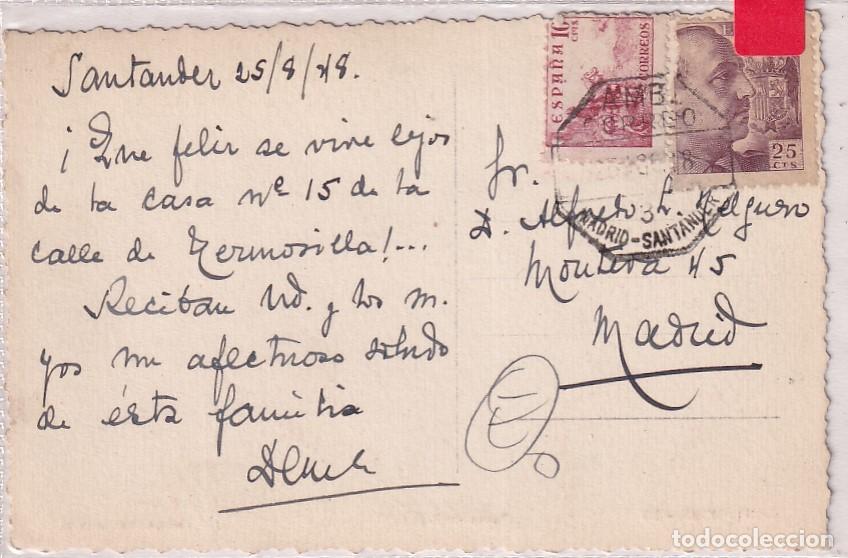 Santander 25/8/48.
¡Que feliz se vive lejos
de la casa nº 15 de la
calle de Hermosilla!...
Recitan Ud. y los su-
yos un afectuoso saludo
de ésta familia
ESPAÑA 10 CTS
CORREOS
25 CTS
AMBT
CORREO
MADRID-SANTANDER
Sr.
D. Alfredo L. Helguero
Montera 45
Madrid
todocoleccion
todocoleccion.net